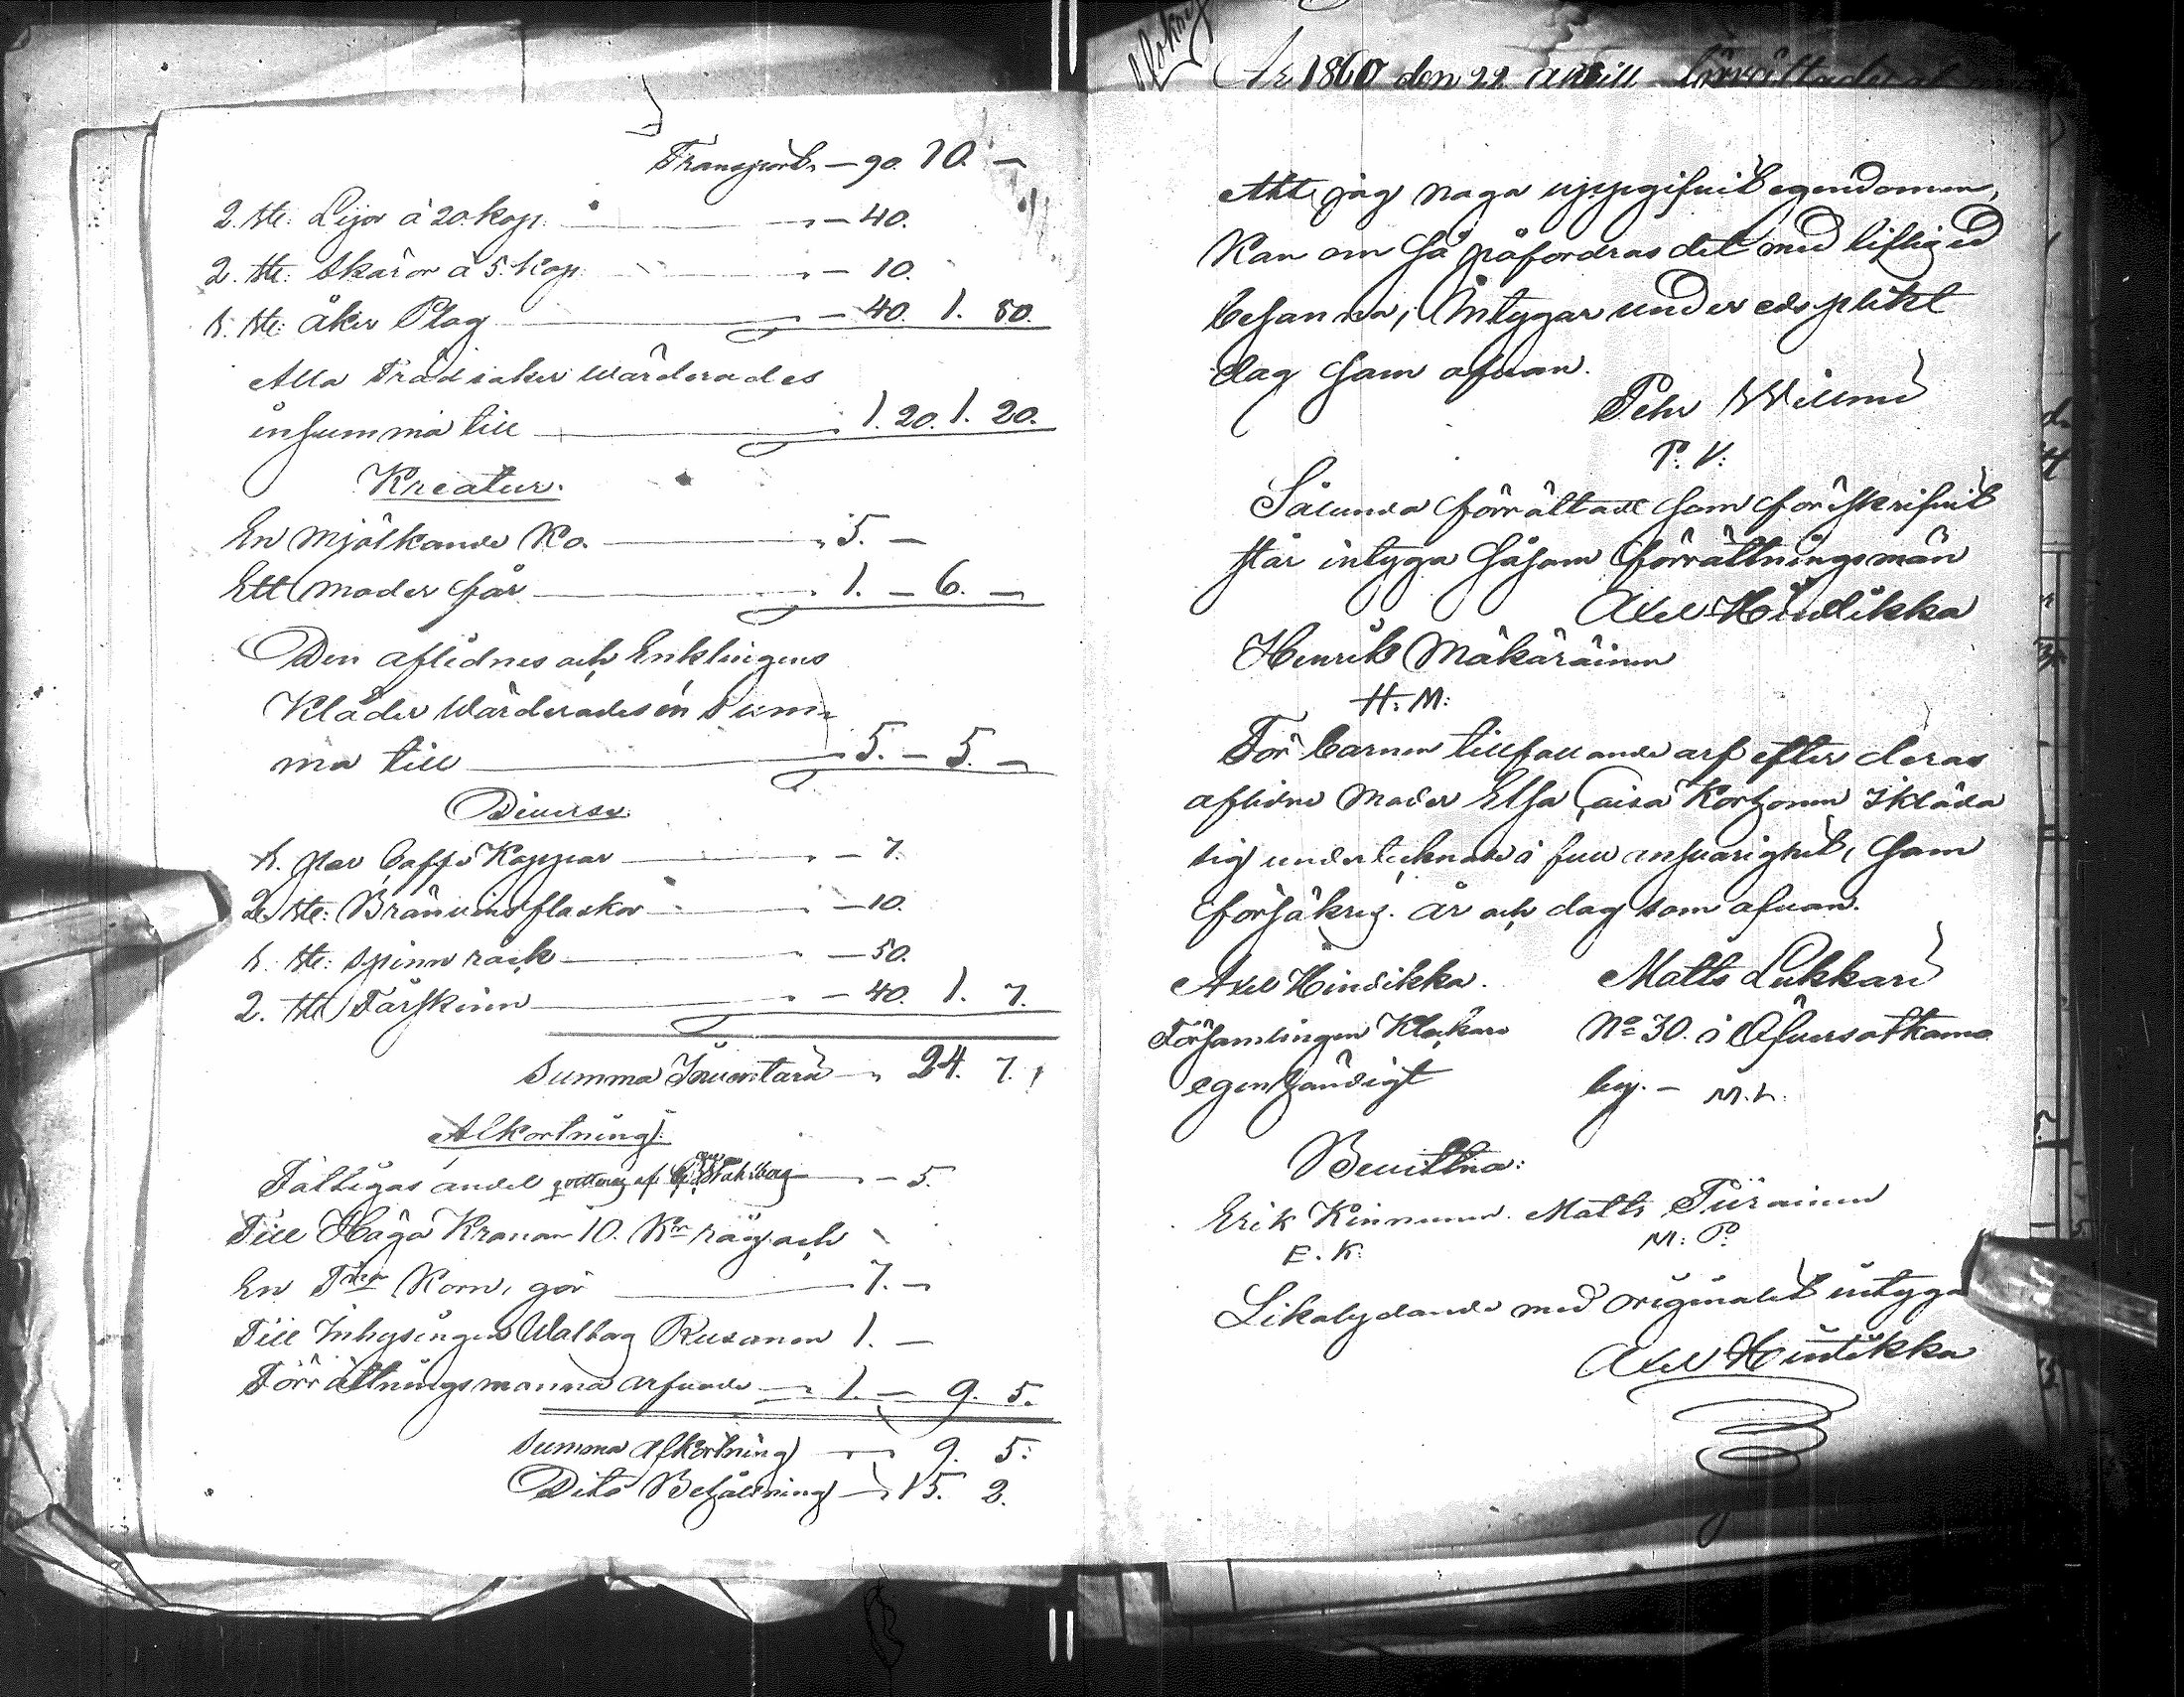 Transport. — 90. 10. —
2. ste: Lijor à 20. kop. — 40.
2. ste: skäror à 5. kop. — 10.
1. ste: åker Plog — 40. 1. 80.
Alla Trädsaker wärderades
in summa till — 1. 20. 1. 20.
Kreatur.
En mjölkande Ko. — 5. —
Ett moder får — 1. — 6. —
Den aflidnes och Enklingens
Kläder wärderades in Sum-
ma till — 5. — 5. —
Diverse.
1. par Caffe Koppar — 7.
2. ste: Bränvins flaskor — 10.
1. ste: spinn räck — 50.
2. ste Fårskinn — 40. 1. 7.
Summa Inventarii — 24. 7.
Afkortning:
Fattigas andel — 5.
Till Höga Kronan 10. Kr råg och
En Korn, gör — 7. —
Till Inhysingen Walborg Rusanen 1. —
Förrättningsmanna arfvode — 1. — 9. 5.
Summa Afkortning — 9. 5:
Dito Behållning — 15. 2.
År 1860 den 22 april förrättades
Att jag noga uppgifvit egendomen,
Kan om så påfordras det med liflig ed
besanna, Intygar under edsplikt
dag som ofvan.
Pehr
P. V:
Sålunda förrättadt som föreskrifvit
står intyga såsom förrättningsmän
Axel Hindikka
Henrik Mäkäräinen
H. M:
För barnen tillfallande arf efter deras
aflidne Moder Elsa Caisa Korhonen ikläda
sig undertecknade i full ansvarighet, som
försäkras. År och dag som ofvan.
Axel Hindikka. Matts Lukkari
Församlingen Klockare No 30. i Öfversotkamo
egenhändigt by. — M. L.
Bevittna:
Erik Kinnunen. Matts Piirainen
E. K. M: P:
Likalydande med originalet intyga
Axel Hintikka